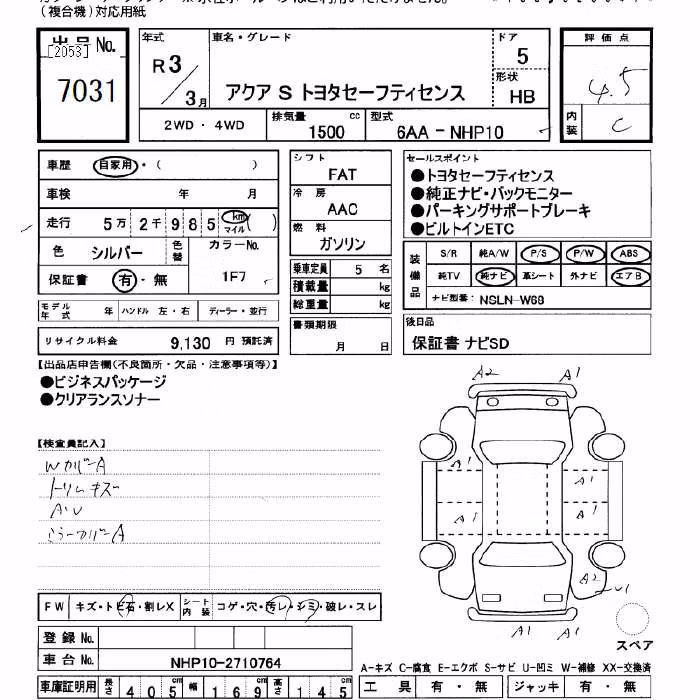 (複合機)対応用紙
出品No.
[2053]
7031
年式
R3/3月
車名・グレード
アクア S トヨタセーフティセンス
ドア
5
形状
HB
評価点
4.5
内装
C
2WD・4WD
排気量
1500 cc
型式
6AA-NHP10
車歴 自家用・( )
車検 年 月
走行 5万2千985 km マイル ( )
色 シルバー 色替
カラーNo.
1F7
保証書 有・無
モデル年式 年 ハンドル 左・右 ディーラー・並行
リサイクル料金 9,130 円 預託済
シフト
FAT
冷房
AAC
燃料
ガソリン
乗車定員 5 名
積載量 kg
総重量 kg
書類期限
月 日
セールスポイント
●トヨタセーフティセンス
●純正ナビ・バックモニター
●パーキングサポートブレーキ
●ビルトインETC
装備品
S/R 純A/W P/S P/W ABS
純TV 純ナビ 革シート 外ナビ エアB
ナビ型番: NSLN-W68
後日品
保証書 ナビSD
【出品店申告欄(不良箇所・欠品・注意事項等)】
●ビジネスパッケージ
●クリアランスソナー
【検査員記入】
WカバーA
トリムキズ
AU
ミラーカバーA
A2 A1
A1 A1
A1 A1
A2
A1 A1
スペア
FW キズ・トビ石・割レX
シート内装 コゲ・穴・汚レ・シミ・破レ・スレ
登録No.
車台No. NHP10-2710764
車庫証明用 長さ 405cm 幅 169cm 高さ 145cm
A-キズ C-腐食 E-エクボ S-サビ U-凹ミ W-補修 XX-交換済
工具 有・無 ジャッキ 有・無